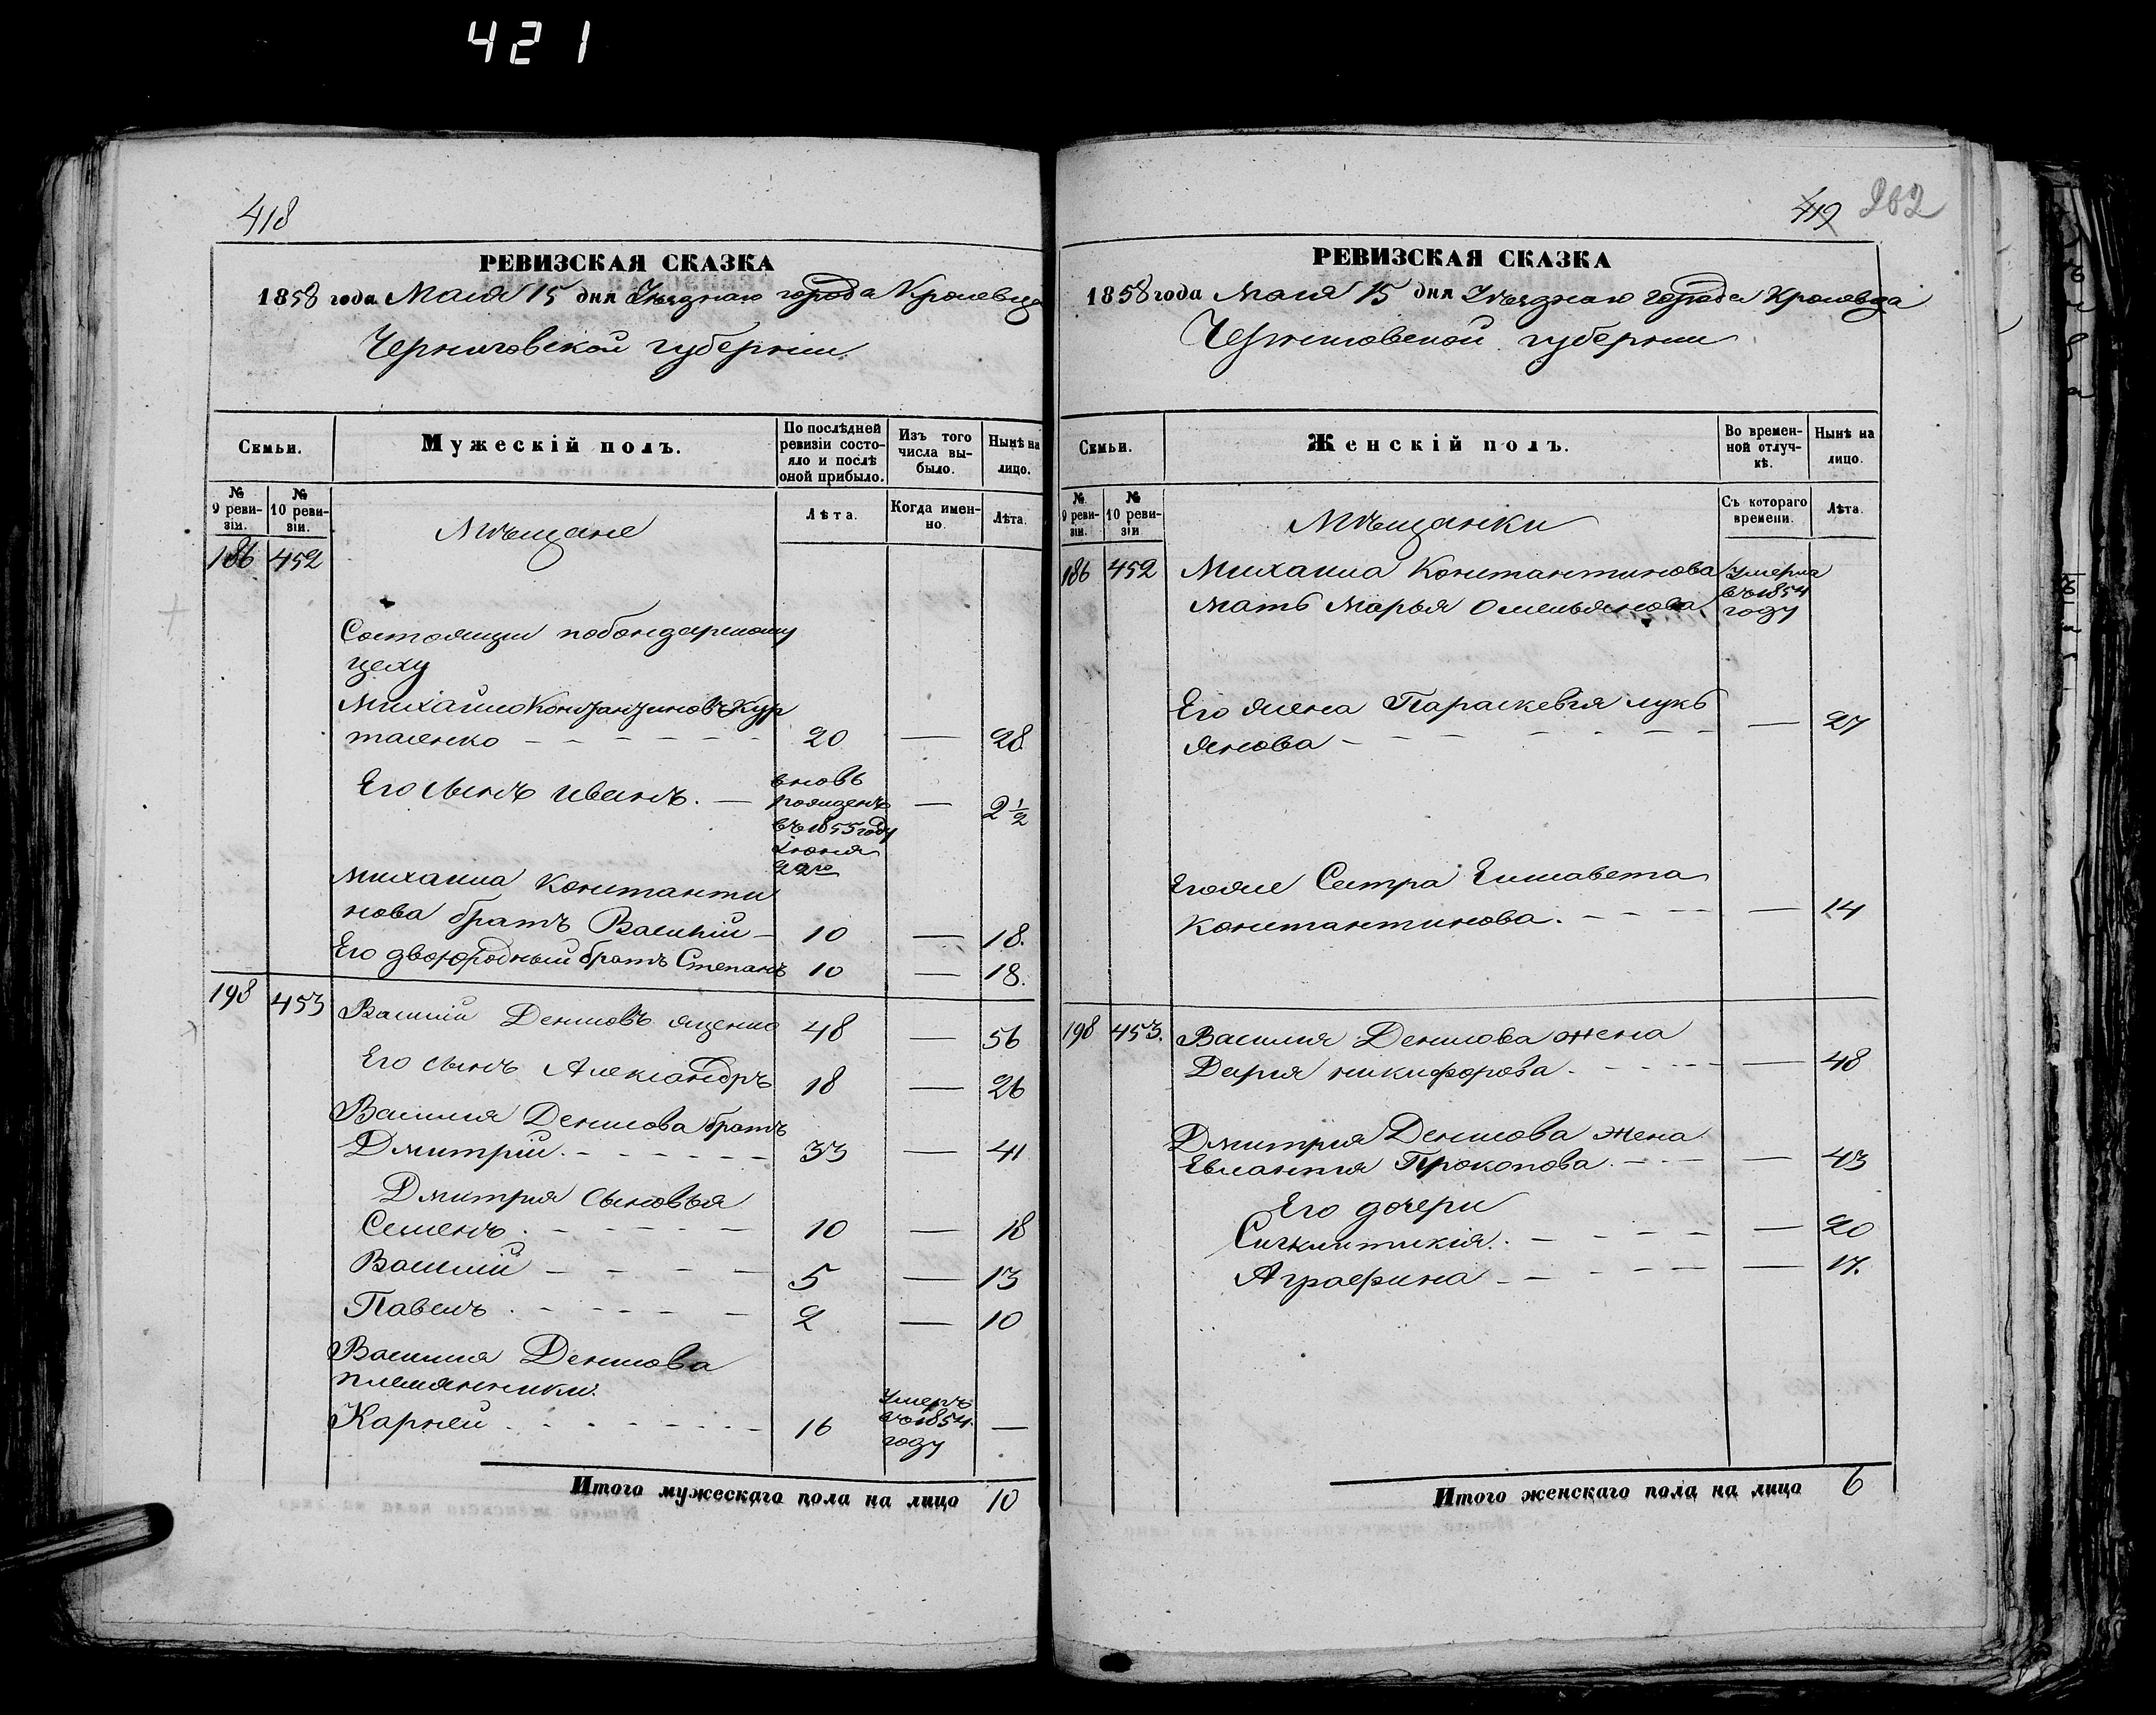 421
418
РЕВИЗСКАЯ СКАЗКА
1858 года Маія 15 дня Уѣзднаго города Кролевца
Черниговской губерніи
Семьи.
Мужескій полъ.
По послѣдней ревизіи состояло и послѣ оной прибыло.
Изъ того числа выбыло.
Нынѣ на лицо.
№ 9 ревизіи.
№ 10 ревизіи.
Мѣщане
Лѣта.
Когда именно.
Лѣта.
186 452
Состоящии по бондарскому
цеху
Михайло Константиновъ Кур
таенко 20 — 28
Его сынъ Иванъ. — вновь рожденъ въ 1855 году Іюня 22го — 2 1/2
Михаила Константи
нова братъ Василій — 10 — 18.
Его двоюродный братъ Степанъ 10 — 18.
198 453 Василій Денисовъ Яценко 48 — 56
Его сынъ Александръ 18 — 26
Василія Денисова братъ
Дмитрій. 33 — 41
Дмитрия сыновья
Семенъ. 10 — 18
Василій 5 — 13
Павелъ. 2 — 10
Василия Денисова
племянники.
Карней 16 Умеръ въ 1854. году —
Итого мужескаго пола на лицо 10
419 262
РЕВИЗСКАЯ СКАЗКА
1858 года Маія 15 дня Уѣзднаго города Кролевца
Черниговской губернии
Семьи.
Женскій полъ.
Во временной отлучкѣ.
Нынѣ на лицо.
№ 9 ревизіи.
№ 10 ревизіи
Мѣщанки
Съ котораго времени.
Лѣта.
186 452 Михаила Константинова Умерла
мать Марья Омельянова въ 1854 году
Его жена Параскевія Лукь
янова — 27
Егоже Сестра Елисавета
Константинова. — 14
198 453. Василия Денисова жена
Дарья Никифорова. — 48
Дмитрия Денисова жена
Евлампія Прокопова. — 43
Его дочери
Сигклитикія. — 20
Аграфина — 17.
Итого женскаго пола на лицо 6